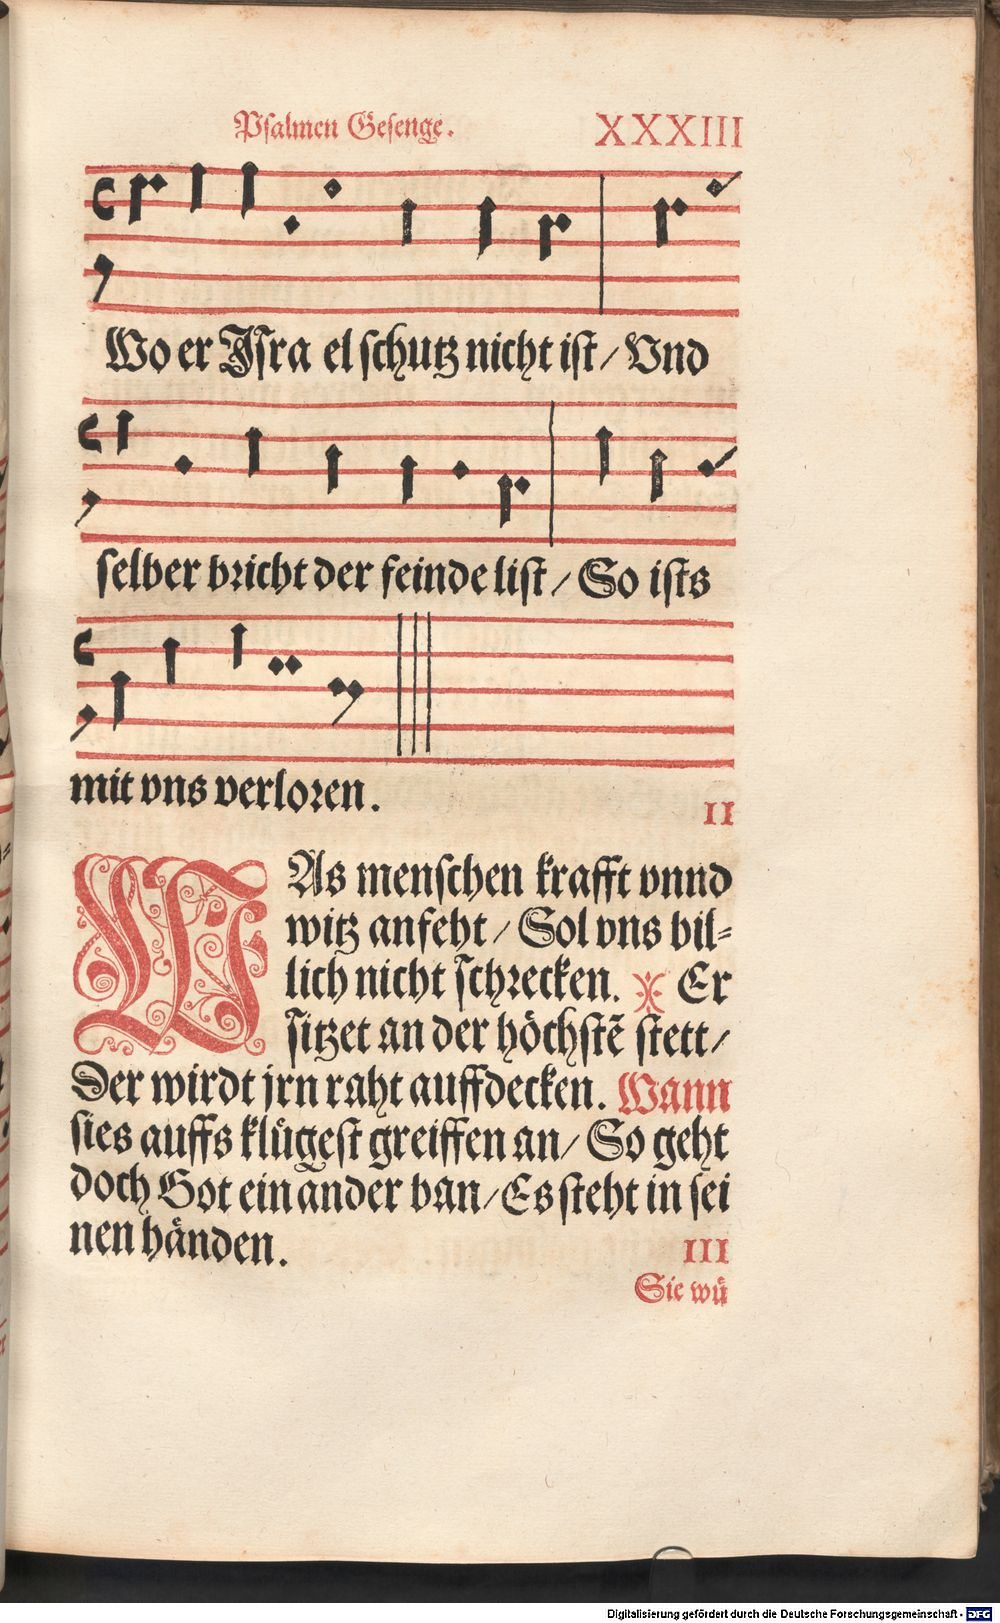 Psalmen Gesenge.
XXXIII
Wo er Jsra el schutz nicht ist/ Vnd
selber bricht der feinde list/ So ists
mit vns verloren.
II
WAs menschen krafft vnnd
witz anfeht/ Sol vns bil-
lich nicht schrecken. Er
sitzet an der höchstẽ stett/
Der wirdt jrn raht auffdecken. Wann
sies auffs klügest greiffen an/ So geht
doch Got ein ander ban/ Es steht in sei
nen händen.
III
Sie wü
Digitalisierung gefördert durch die Deutsche Forschungsgemeinschaft - DFG